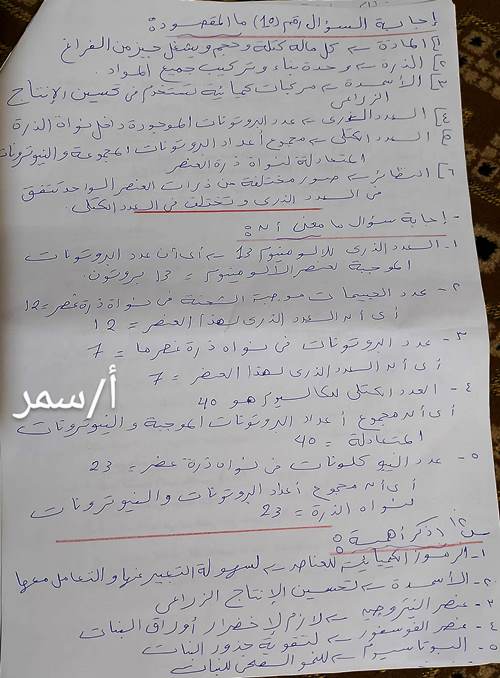 إجابة السؤال رقم (١٥) ما المقصود بـ:
١] المادة ← كل ماله كتلة وحجم ويشغل حيز من الفراغ
٢] الذرة ← وحدة بناء وتركيب جميع المواد.
٣] الأسمدة ← مركبات كيميائية تستخدم في تحسين الإنتاج
الزراعي
٤] العدد الذري ← عدد البروتونات الموجودة داخل نواة الذرة
٥] العدد الكتلي ← مجموع أعداد البروتونات الموجبة والنيوترونات
المتعادلة لنواة ذرة العنصر
٦] النظائر ← صور مختلفة من ذرات العنصر الواحد تتفق
في العدد الذري وتختلف في العدد الكتلي.
- إجابة سؤال ما معنى أنه:
١- العدد الذري للألومنيوم 13 ← أي أن عدد البروتونات
الموجبة لعنصر الألومنيوم = 13 بروتون.
٢- عدد الجسيمات موجبة الشحنة في نواة ذرة عنصر = 12
أي أنه العدد الذري لهذا العنصر = 12
٣- عدد البروتونات في نواه ذرة عنصر ما = 7
أي أنه العدد الذري لهذا العنصر = 7
٤- العدد الكتلي للكالسيوم هو 40
أي أنه مجموع أعداد البروتونات الموجبة و النيوترونات
المتعادلة = 40
أ/سمر
٥- عدد النيوكلونات في نواه ذرة عنصر = 23
أي أنه مجموع أعداد البروتونات والنيوترونات
لنواه الذرة = 23
س١٢ اذكر أهمية:
١- الرموز الكيميائية للعناصر ← لسهولة التعبير عنها والتعامل معها
٢- الأسمدة ← لتحسين الإنتاج الزراعي
٣- عنصر النيتروجين ← لازم لإخضرار أوراق النبات
٤- عنصر الفوسفور ← لتقوية جذور النبات
٥- البوتاسيوم ← للنمو للنبات